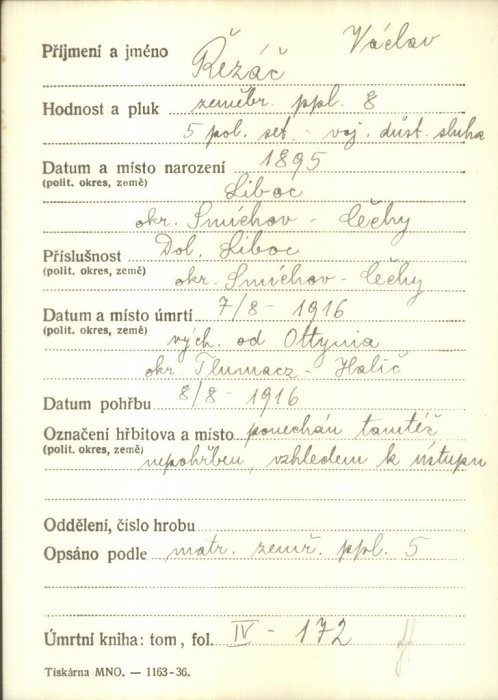 Václav
Příjmení a jméno Řezáč
Hodnost a pluk zeměbr. ppl. 8
5 pol. set. - voj. důst. sluha
Datum a místo narození 1895
(polit. okres, země) Liboc
okr. Smíchov - Čechy
Příslušnost Dol. Liboc
(polit. okres, země) okr. Smíchov - Čechy
Datum a místo úmrtí 7/8 - 1916
(polit. okres, země) vých. od Ottynia
okr. Tlumacz - Halič
Datum pohřbu 8/8 - 1916
Označení hřbitova a místo ponechán tamtéž
(polit. okres, země) nepohřben, vzhledem k ústupu
Oddělení, číslo hrobu
Opsáno podle matr. zemř. ppl. 5
Úmrtní kniha: tom, fol. IV - 172
Tiskárna MNO. — 1163-36.